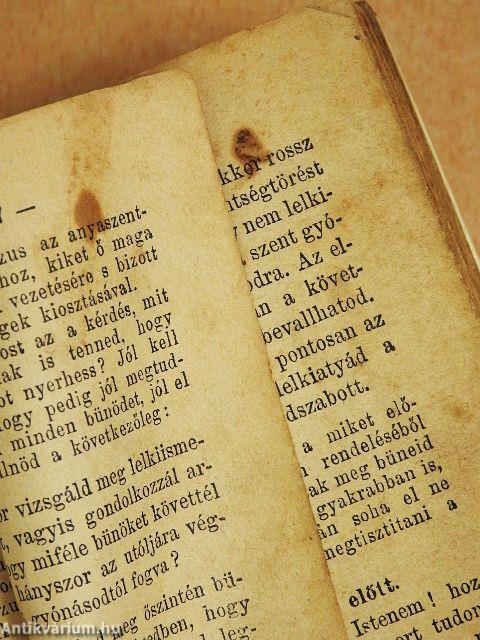 7 —
zus az anyaszent-
hoz, kiket ő maga
vezetésére s bízott
gek kiosztásával.
ost az a kérdés, mit
ak is tenned, hogy
ot nyerhess? Jól kell
hogy pedig jól megtud-
minden bünödet, jól el
lnöd a következőleg:
or vizsgáld meg lelkiisme-
t, vagyis gondolkozzál ar-
ogy miféle bünöket követtél
hányszor az utóljára vég-
gyónásodtól fogva?
meg őszintén bü-
edben, hogy
leg-
kkor rossz
ntségtörést
y nem lelki-
szent gyó-
odra. Az el-
n a követ-
bevallhatod.
pontosan az
lelkiatyád a
dszabott.
a miket elő-
n rendeléséből
ak meg büneid
gyakrabban is,
án soha el ne
megtisztítani a
előtt.
Istenem! hoz
ert tudom
Antikvarium.hu